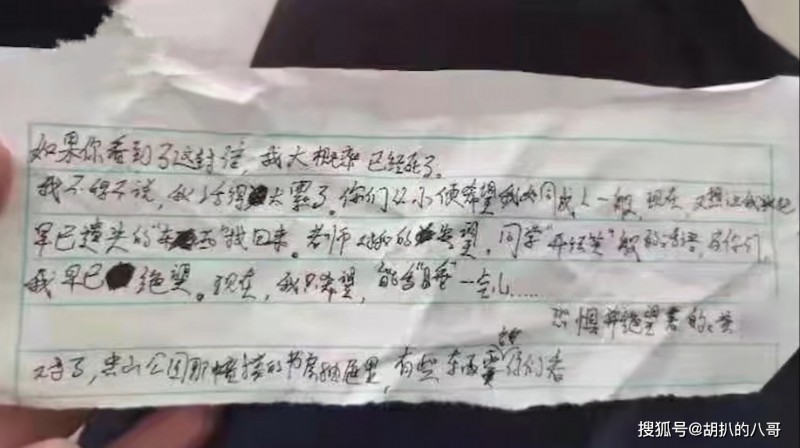 如果你看到了这封信,我大概率已经死了。
我不得不说,我活得太累了。你们从小便希望我如同成人一般,现在,又想让我把
早已遗失的“东西”找回来。老师对我的失望,同学“开玩笑”般的话语,与你们,
我早已绝望。现在,我只希望,能多“睡”一会儿……
恐惧并绝望着的
对了,公园那幢楼的书房抽屉里,有些东西需给你们看
搜狐号@胡扒的八哥